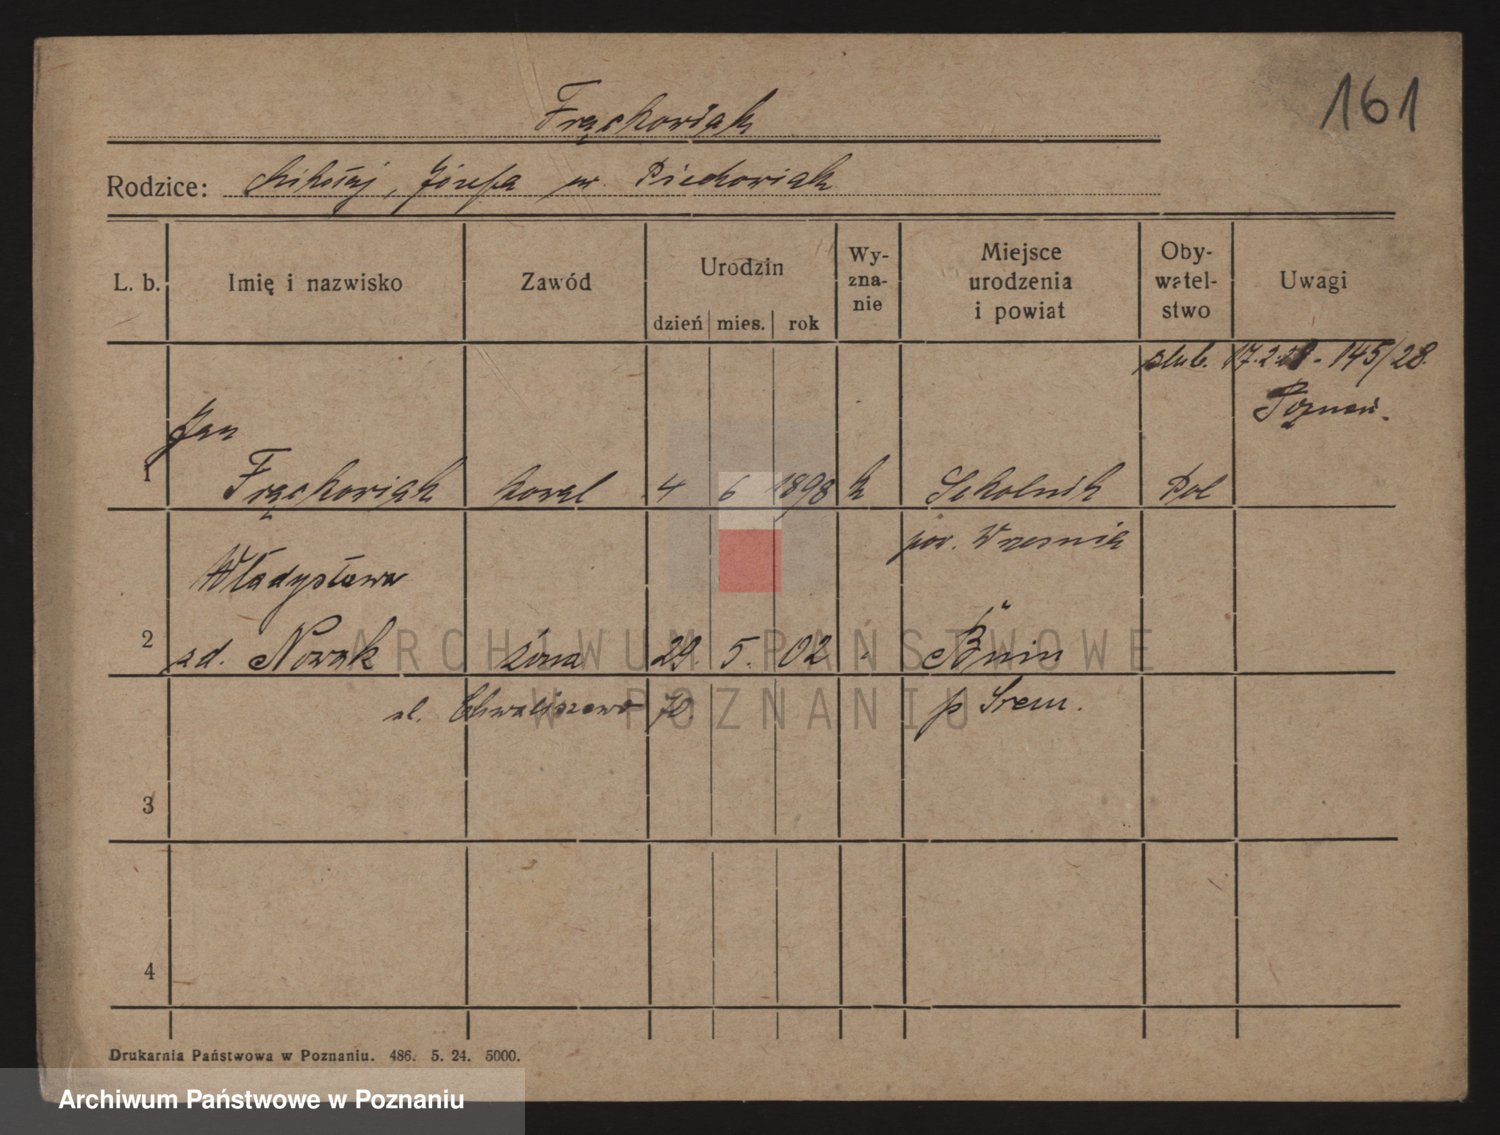 161
Frąckowiak
Rodzice: Mikołaj, Józefa ur. Piechowiak
L. b. Imię i nazwisko Zawód Urodzin dzień mies. rok Wy-zna-nie Miejsce urodzenia i powiat Oby-watel-stwo Uwagi
ślub. 17.2.28 - 145/28.
Poznań.
Jan
1 Frąckowiak kowal 4 6 1898 k Sokolnik Pol
pow. Września
Władysława
2 zd. Nowak żona 29 5. 02 " Bnin
ul. Chwaliszewo 70 p Śrem.
3
4
Drukarnia Państwowa w Poznaniu. 486. 5. 24. 5000.
ARCHIWUM PAŃSTWOWE
W POZNANIU
Archiwum Państwowe w Poznaniu